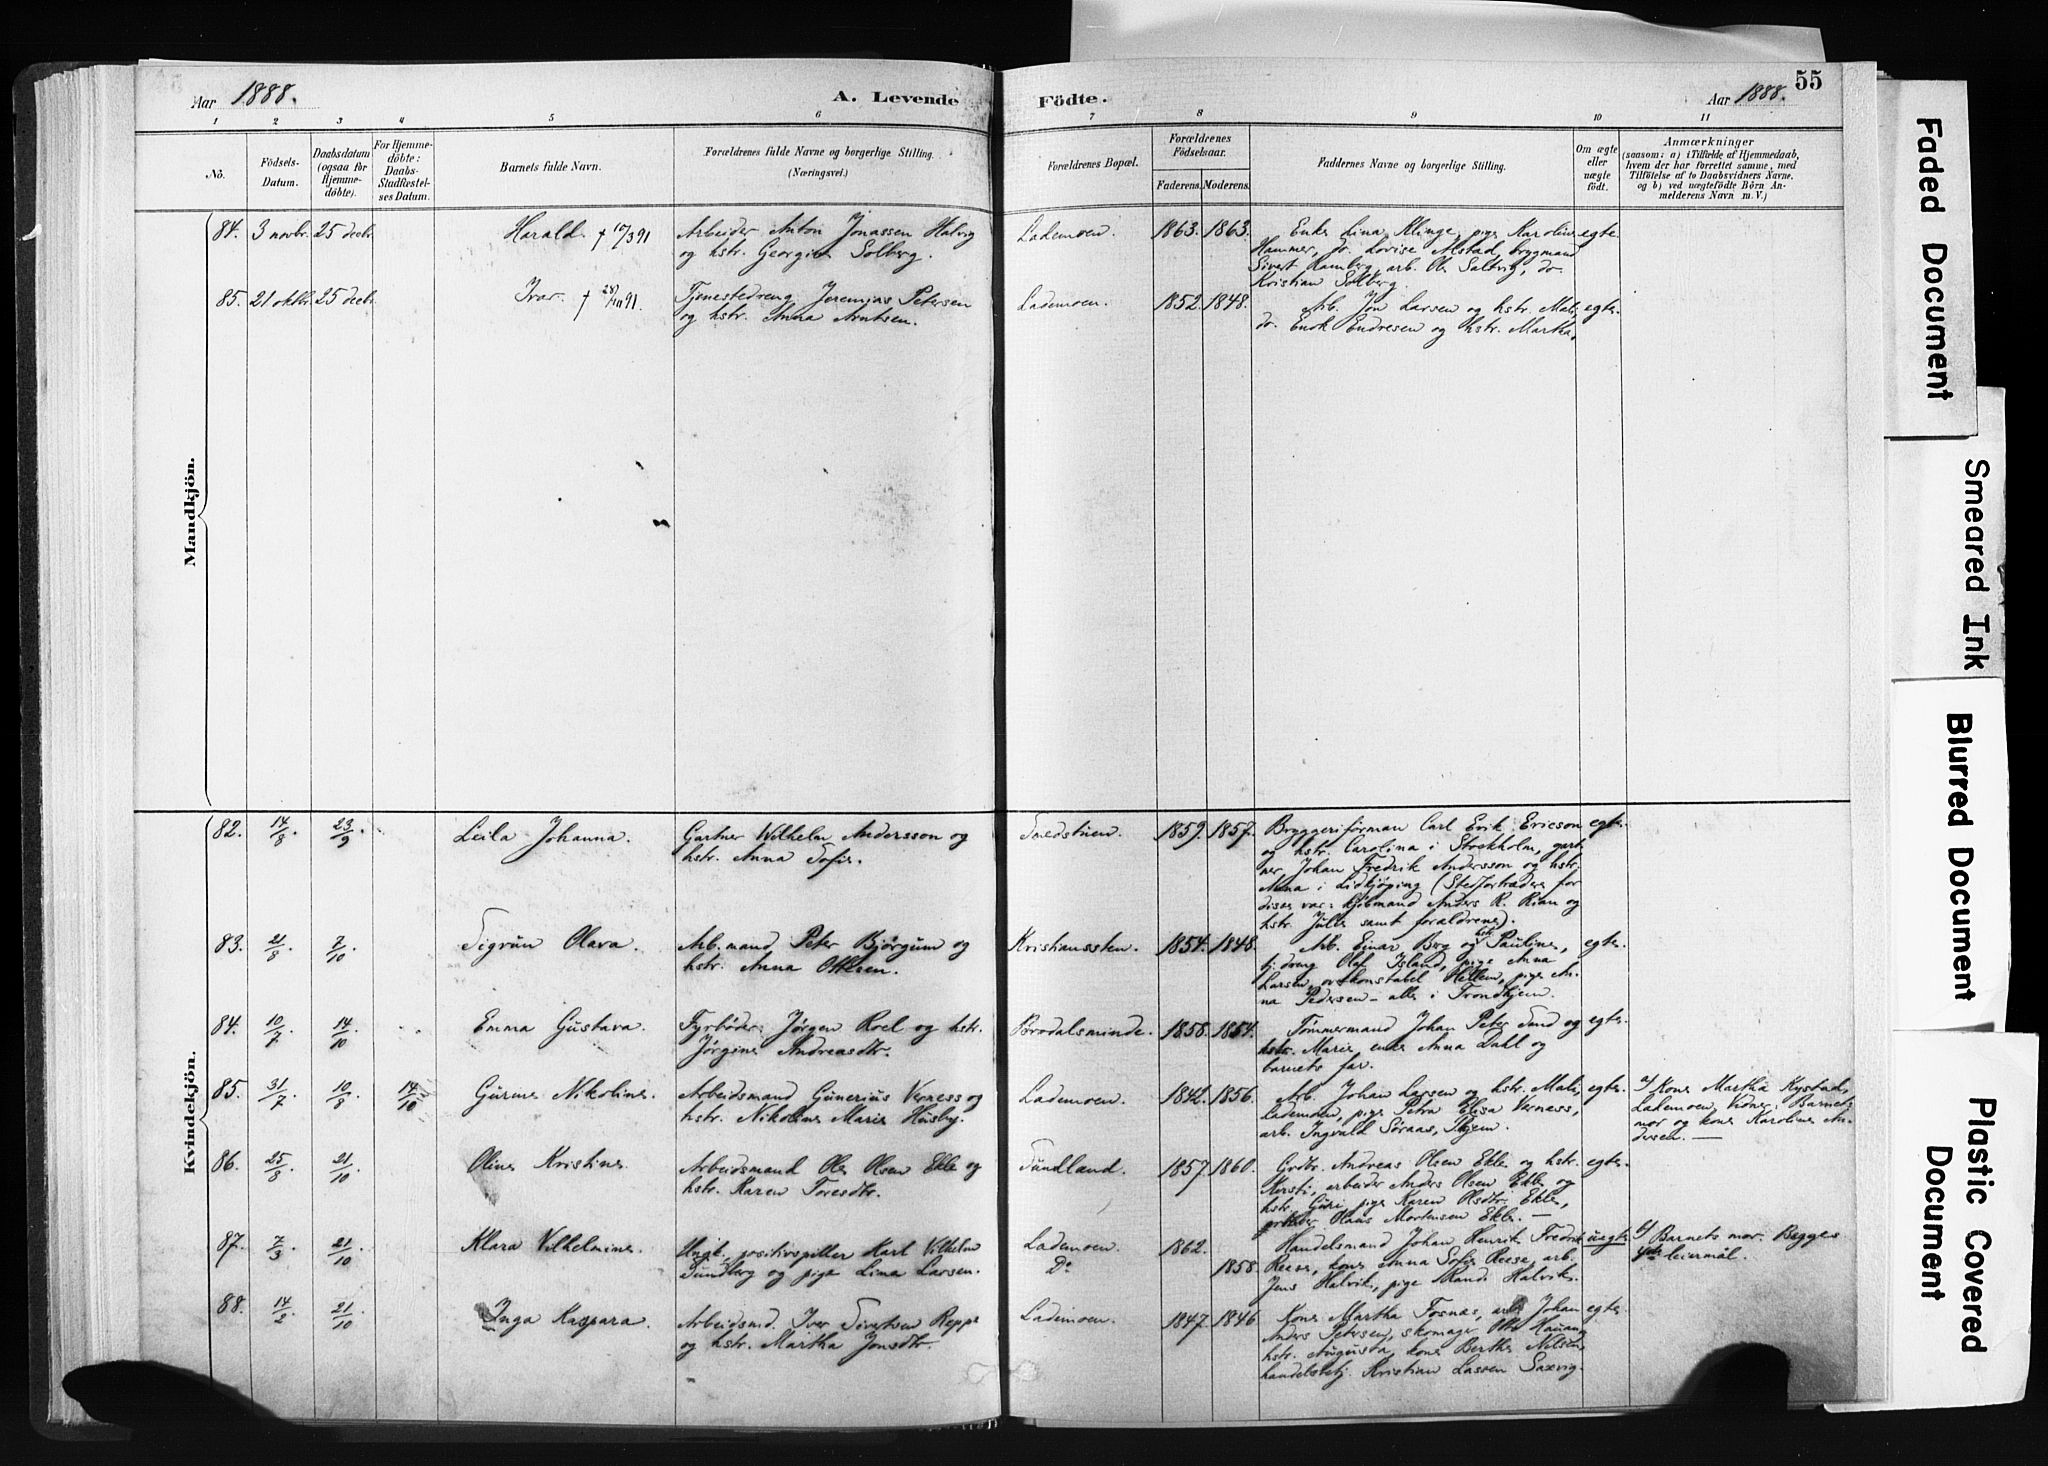 Aar 1888. A. Levende Födte. Aar 1888. 55
1 2 3 4 5 6 7 8 9 10 11
No.
Födsels-
Datum.
Daabsdatum
(ogsaa for
Hjemme-
döbte).
For Hjemme-
döbte:
Daabs-
Stadfæstel-
ses Datum.
Barnets fulde Navn.
Forældrenes fulde Navne og borgerlige Stilling.
(Næringsvei.)
Forældrenes Bopæl.
Forældrenes
Födselsaar.
Faderens. Moderens.
Faddernes Navne og borgerlige Stilling.
Om ægte
eller
uægte
födt.
Anmærkninger
(saasom: a) i Tilfælde af Hjemmedaab,
hvem der har forrettet samme, med
Tilföielse af to Daabsvidners Navne,
og b) ved uægtefödte Börn An-
melderens Navn m. V.)
Mandkjön.
84. 3 novbr. 25 decbr. Harald. † 10/3 91 Arbeider Anton Jonassen Halvig
og hstr. Georgine Solberg.
Lademoen. 1863. 1863. Enke Lina Klinge, pige Karoline egte.
Hammer, do. Lovise Alstad, brygmand
Sivert Ramberg, arb. Ole Saltvig, do.
Kristian Solberg.
85. 21 oktbr. 25 decbr. Ivar. † 28/10 91. Tjenestedreng Jeremias Petersen
og hstr. Anna Arntsen.
Lademoen. 1852. 1848. Arb. Jon Larsen og hstr. Mali, egte.
do. Enok Endresen og hstr. Martha.
Kvindekjön.
82. 14/8. 23/9. Leila Johanna. Gartner Wilhelm Andersson og
hstr. Anna Sofie.
Smedstuen. 1859. 1857. Bryggeriforman Carl Erik Ericson egte.
og hstr. Carolina i Stockholm, gart-
ner Johan Fredrik Andersson og hstr.
Anna i Lidkjöping (Stedfortrædere for
disse var: kjöbmand Anders R. Rian og
hstr. Julie samt forældrene).
83. 21/8. 7/10. Sigrun Olava. Arb.mand Peter Bjørgum og
hstr. Anna Ottesen.
Kristianssten. 1854. 1848. Arb. Einar Berg og hstr. Pauline, egte.
tj.dreng Olaf Island, pige Anna
Larsen, ov.konstabel Hellem, pige An-
na Pedersen – alle i Trondhjem.
84. 10/7. 14/10. Emma Gustava. Fyrbøder Jørgen Roel og hstr.
Jørgine Andreasdtr.
Brodalsminde. 1858. 1854. Tømmermand Johan Peter Sund og egte.
hstr. Marie, enke Anna Dahl og
barnets far.
85. 31/7. 10/8. 14/10 Gurine Nikoline. Arbeidsmand Gunerius Verness og
hstr. Nikoline Marie Husby.
Lademoen. 1842. 1856. Arb. Johan Larsen og hstr. Mali, egte.
Lademoen, pige Petra Elisa Verness,
arb. Ingvald Søraas, Thjem.
a/ Kone Martha Kystad,
Lademoen. Vidner: Barnets
mor og kone Karoline An-
dersen. —
86. 25/8. 21/10. Oline Kristine. Arbeidsmand Ole Olsen Ekle og
hstr. Karen Toresdtr.
Sundland. 1857. 1860. Grdbr. Andreas Olsen Ekle og hstr. egte.
Kersti, arbeider Anders Olsen Ekle og
hstr. Guri, pige Karen Olsdtr. Ekle,
Olaus Mortensen Ekle. —
87. 7/3. 21/10. Klara Vilhelmine. Ungk. positivspiller Karl Vilhelm
Sundberg og pige Lina Larsen.
Lademoen. 1862. Handelsmand Johan Henrik Fredrik uegte.
Do 1858. Reese, kone Anna Sofie Reese, arb.
Jens Halvik, pige Randi Halvik.
b/ Barnets mor. Begges
leiermål.
88. 14/2. 21/10. Inga Kaspara. Arbeidsmd. Iver Sivertsen Reppe
og hstr. Martha Jonsdtr.
Lademoen. 1847. 1846 Kone Martha Fosnæs, arb. Johan egte.
Anders Petersen, skomager Otto Hauan,
hstr. Augusta, kone Berthe Nilsen,
handelsbtj. Kristian Lassen Saxvig.
Faded Document
Smeared Ink
Blurred Document
Plastic Covered
Document